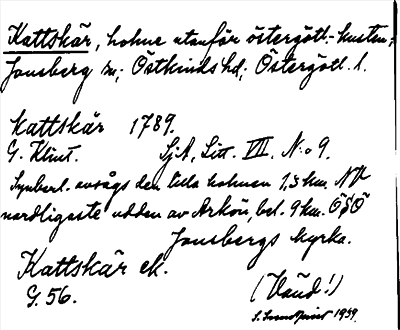 Kattskär, holme utanför östergötl.-kusten;
Jonsberg sn; Östkinds hd; Östergötl. l.
Kattskär 1789.
G. Klint. SjA, Litt. VII. N:o 9.
Synbarl. avsågs den lilla holmen 1,3 km. NV
nordligaste udden av Arkön, bel. 9 km. ÖSÖ
Jonsbergs kyrka.
Kattskär ek.
G. 56.
(Vand!)
1939.